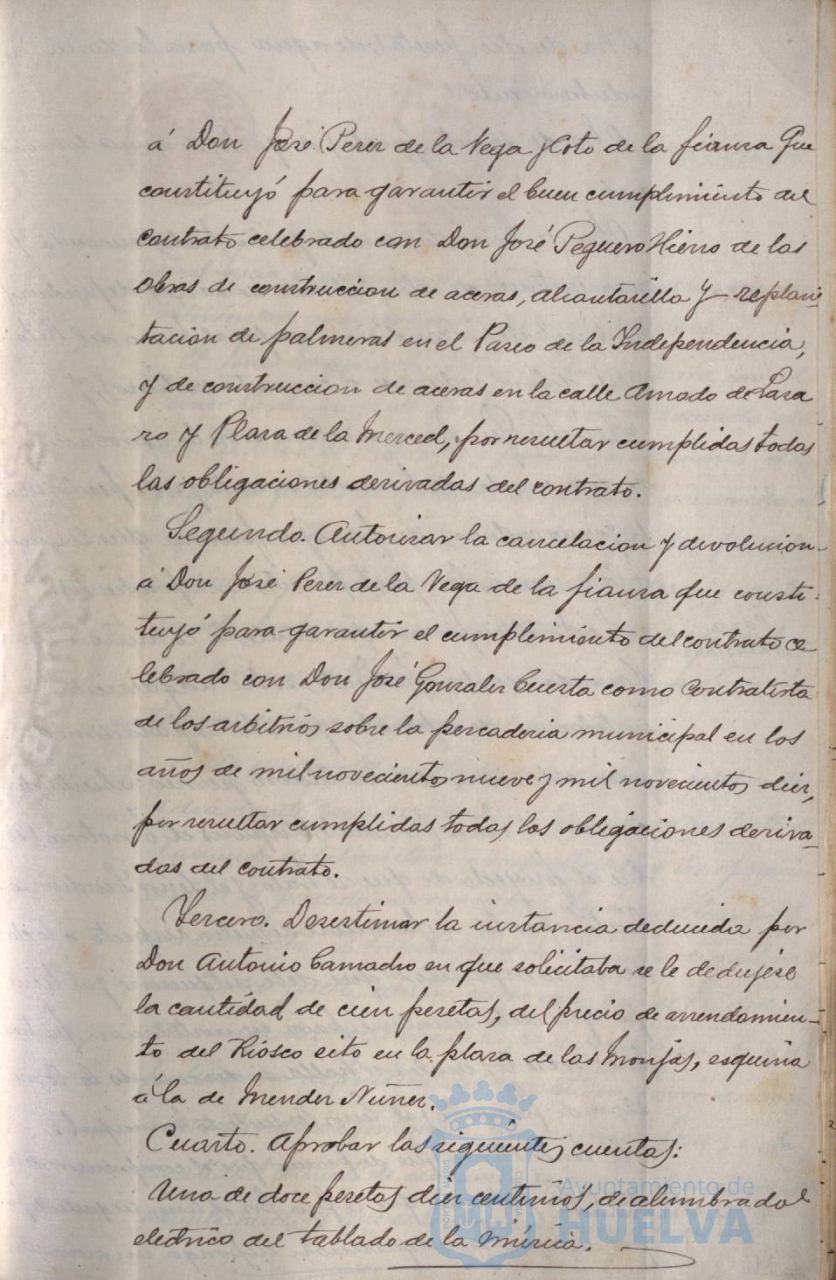 á Don José Perez de la Vega y Coto de la fianza que
constituyó para garantir el buen cumplimiento del
contrato celebrado con Don José Peguero Hierro de las
obras de construccion de aceras, alcantarilla y replan-
tacion de palmeras en el Paseo de la Independencia,
y de construccion de aceras en la calle Amado de Laza
ro y Plaza de la Merced, por resultar cumplidas todas
las obligaciones derivadas del contrato.
Segundo. Autorizar la cancelacion y devolucion
á Don José Perez de la Vega de la fianza que consti-
tuyó para garantir el cumplimiento del contrato ce-
lebrado con Don José Gonzalez Cuesta como contratista
de los arbitrios sobre la pescaderia municipal en los
años de mil novecientos nueve y mil novecientos diez,
por resultar cumplidas todas las obligaciones deriva-
das del contrato.
Tercero. Desestimar la instancia deducida por
Don Antonio Camacho en que solicitaba se le dedujese
la cantidad de cien pesetas, del precio de arrendamien-
to del Kiosco sito en la plaza de las Monjas, esquina
á la de Mendez Nuñez.
Cuarto. Aprobar las siguientes cuentas:
Una de doce pesetas diez centimos, de alumbrado
electrico del tablado de la música.
Ayuntamiento de
HUELVA